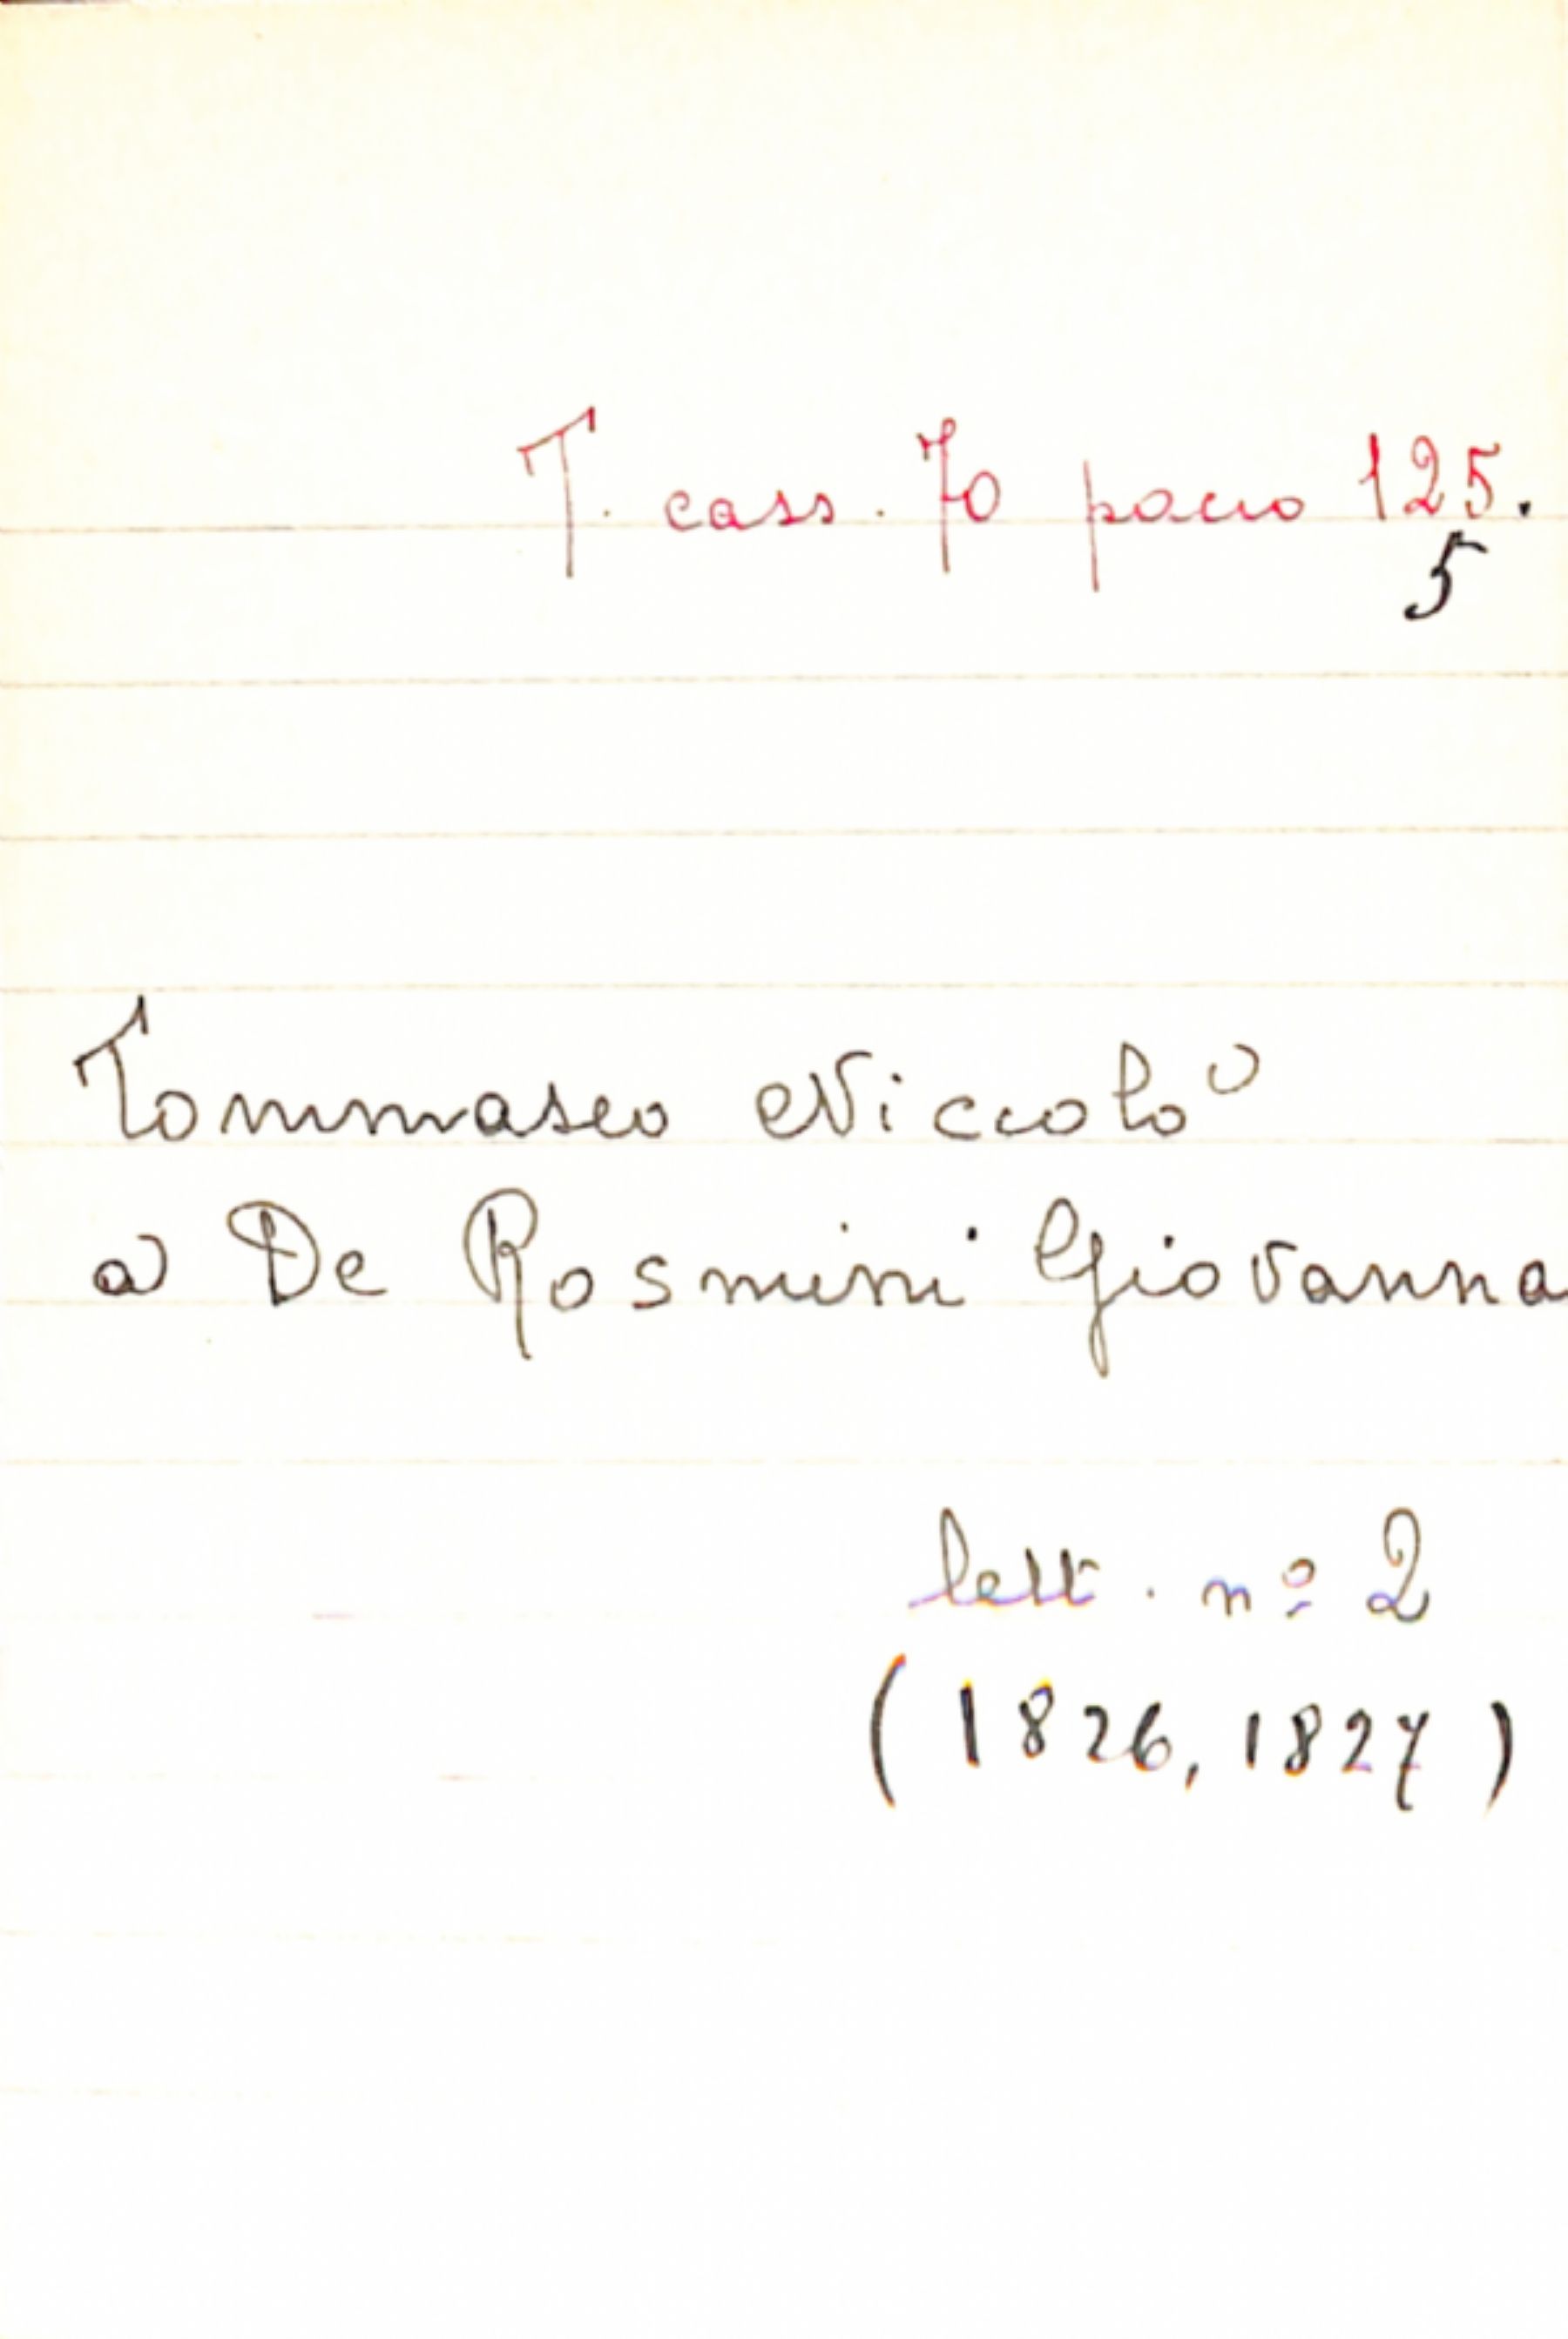 T. cass. 70 pacco 125.
5
Tommaseo Niccolò
a De Rosmini Giovanna
lett. nº 2
(1826, 1827)